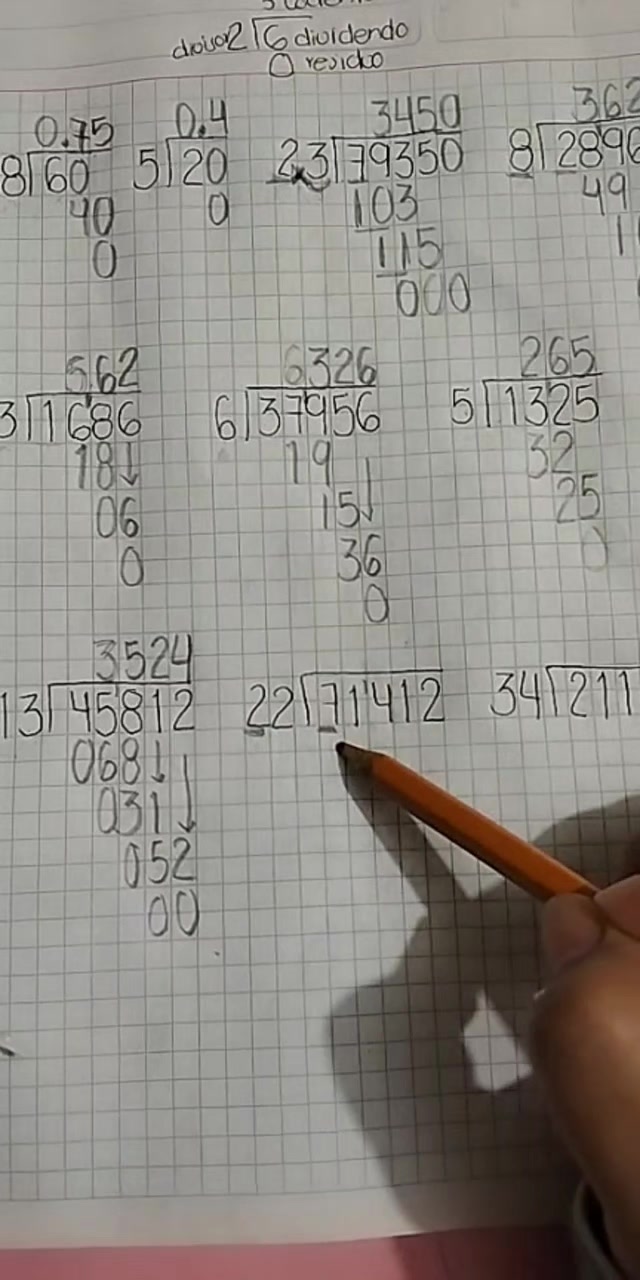 divisor 2 6 dividendo
0 residuo
0.75 0.4 3450 362
8 60 5 20 23 79350 8 2896
40 0 103 49
0 115
000
562 6326 265
3 1686 6 37956 5 1325
18 19 32
06 15 25
0 36 0
0
3524
13 45812 22 71412 34 211
068
031
052
00